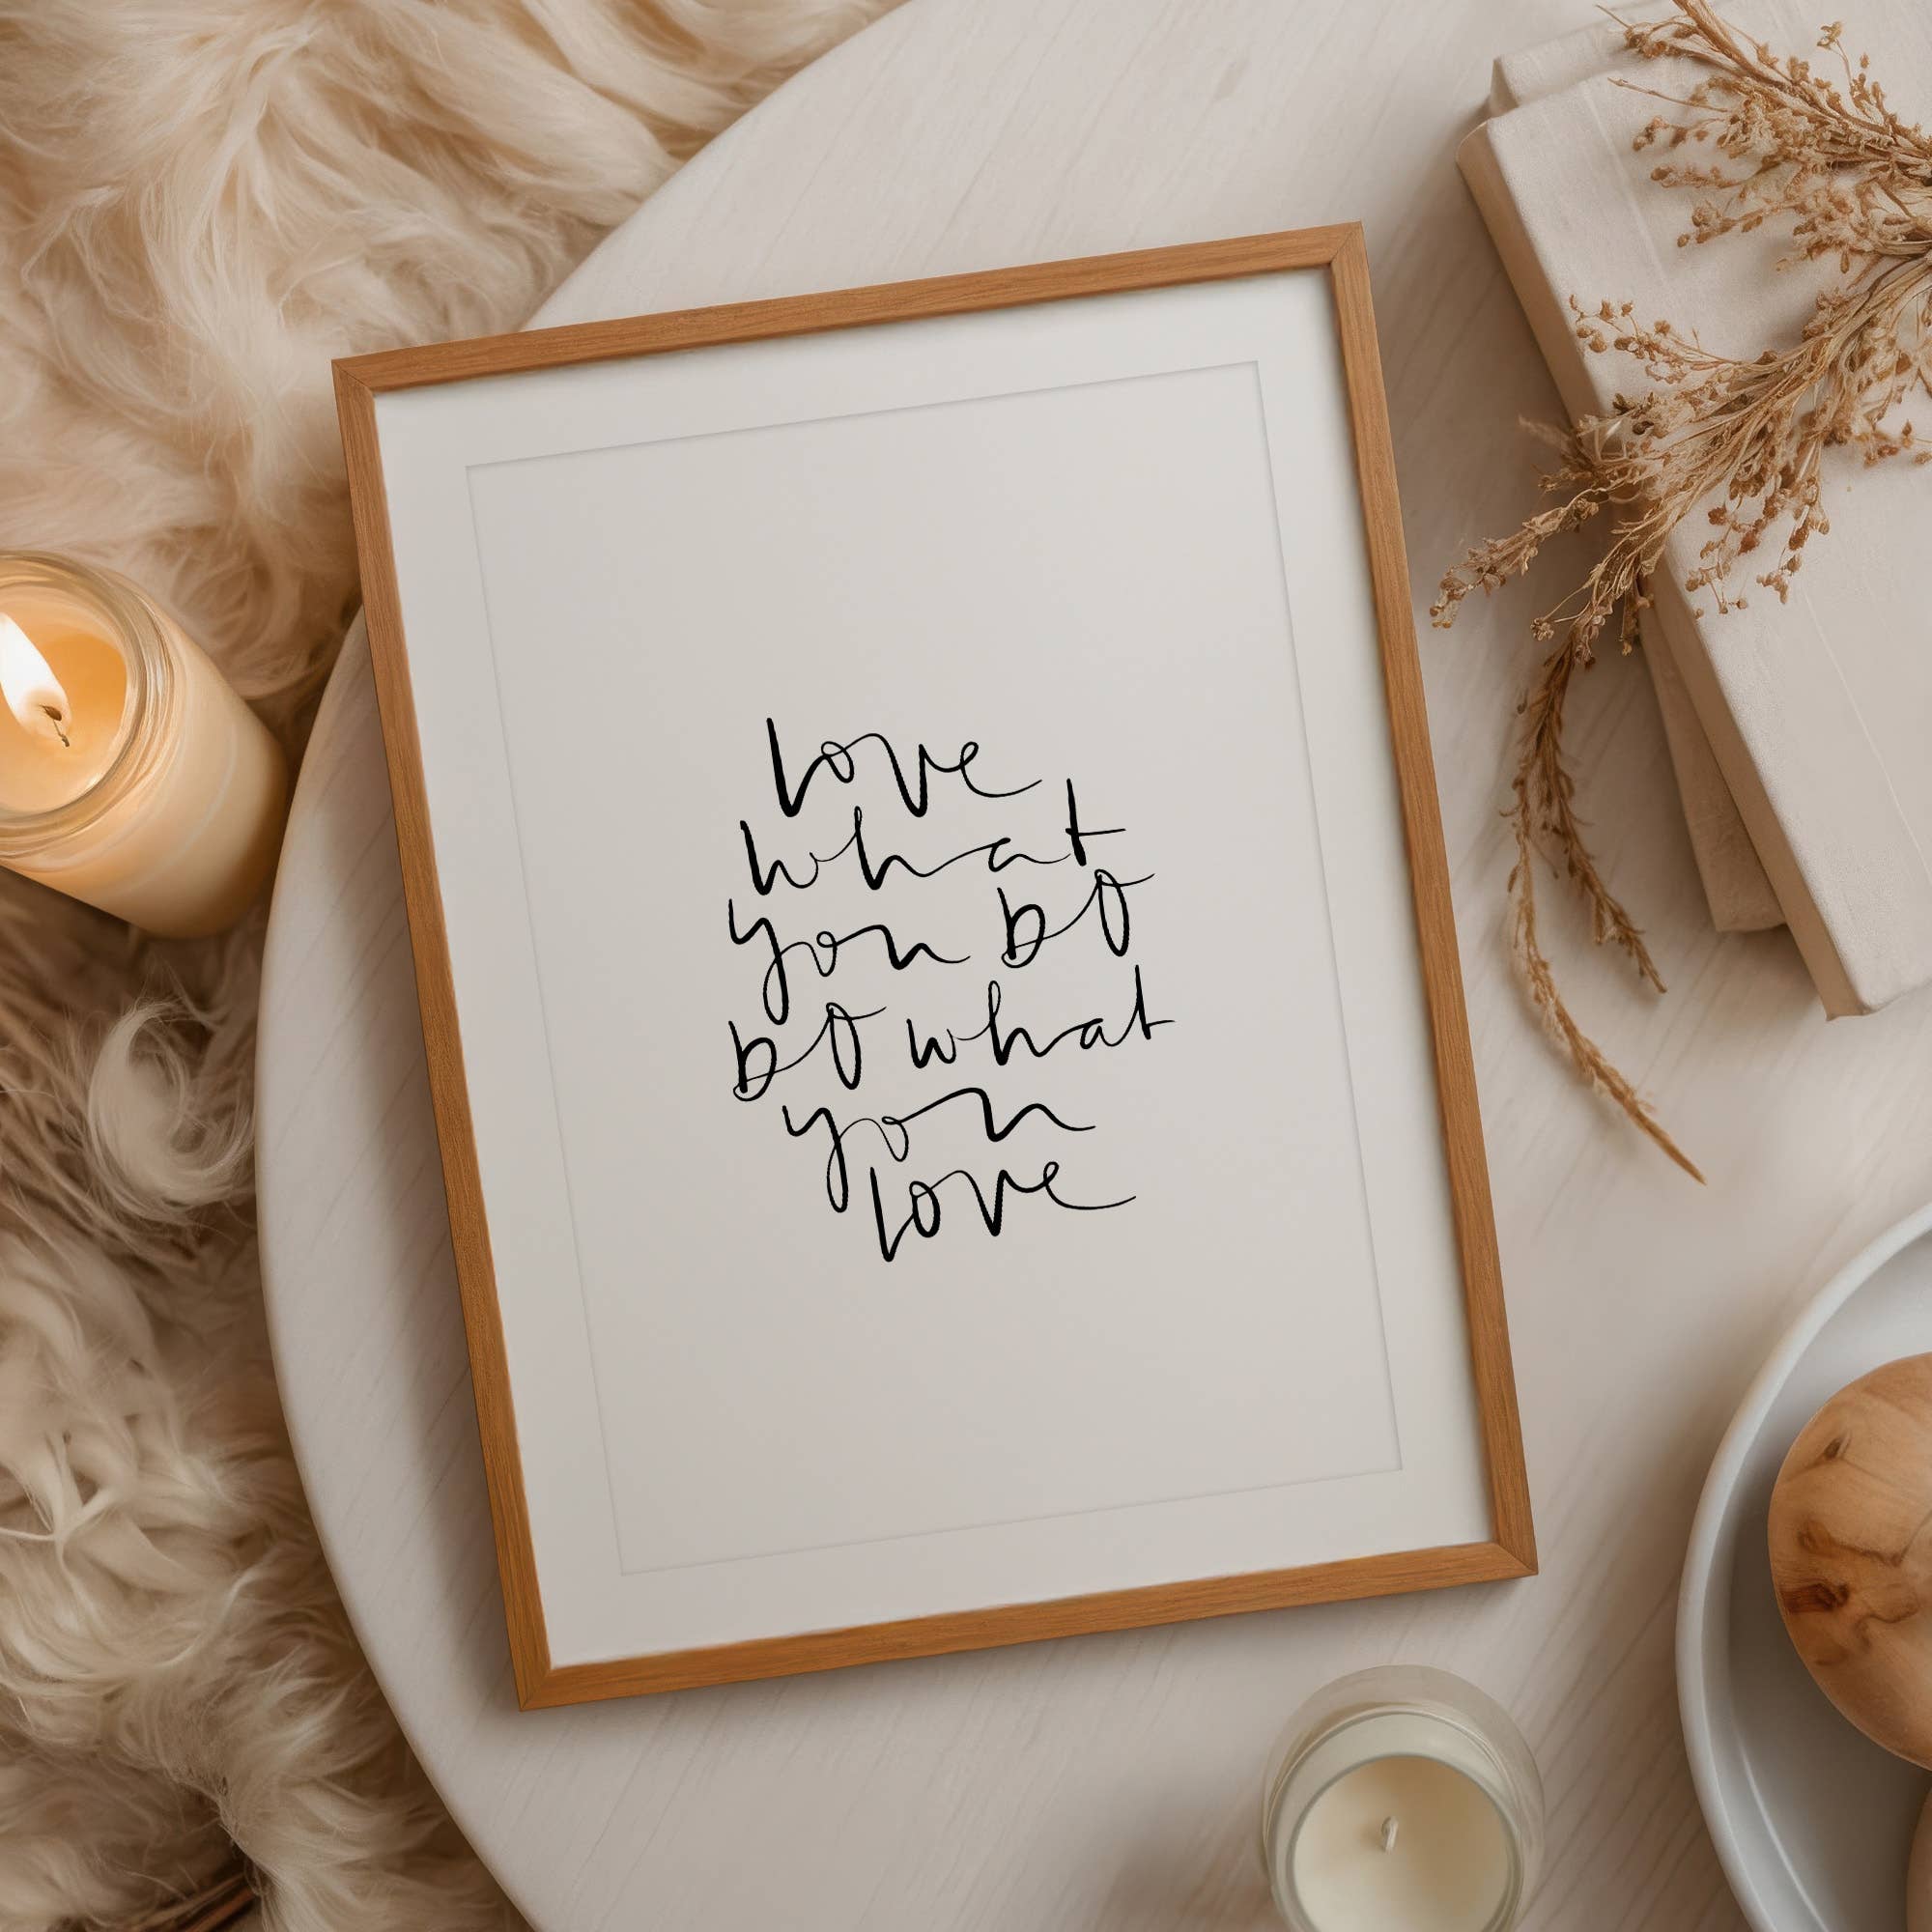 love
what
you do
do what
you
love